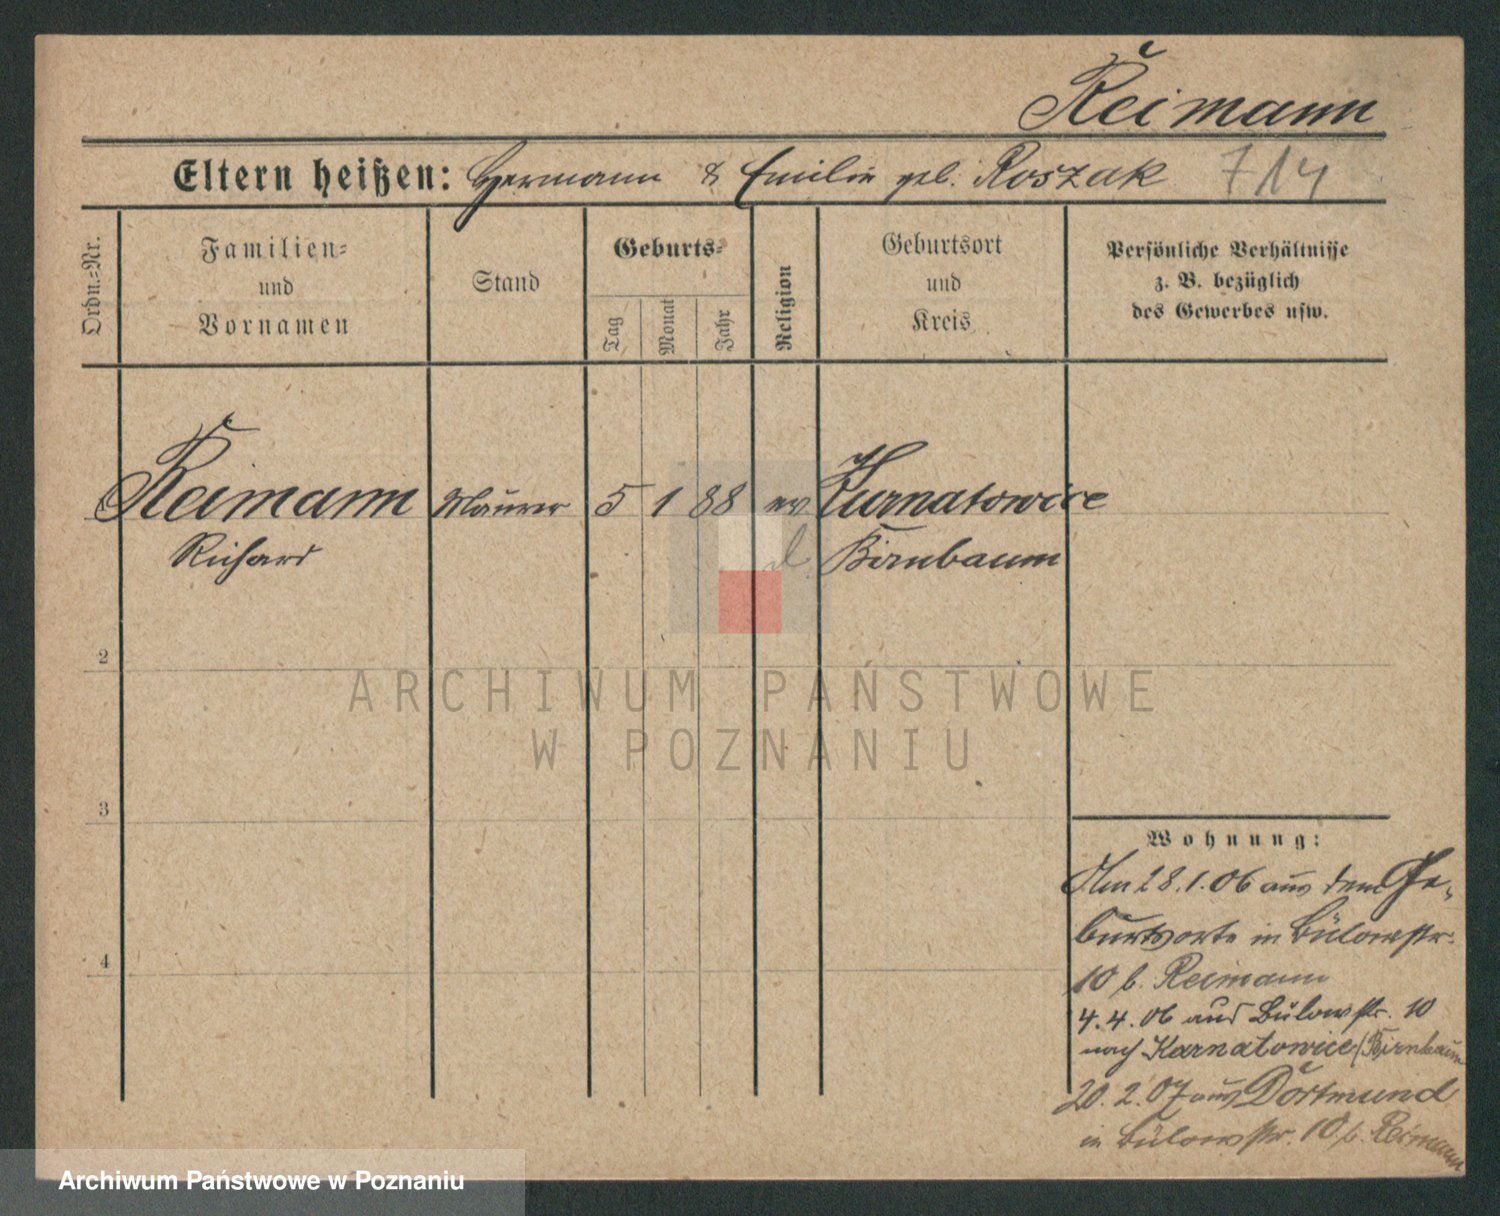 Reimann
Eltern heißen: Hermann & Emilie geb. Roszak 714
Ordn.=Nr.
Familien=
und
Vornamen
Stand
Geburts=
Tag
Monat
Jahr
Religion
Geburtsort
und
Kreis
Persönliche Verhältnisse
z. B. bezüglich
des Gewerbes usw.
Reimann Maurer 5 1 88 ev Kurnatowice
Richard d. Birnbaum
2
ARCHIWUM PAŃSTWOWE
W POZNANIU
3
Wohnung:
Am 28.1.06 aus dem Ge-
burtsorte in Bülowstr.
10 b. Reimann
4
4.4.06 aus Bülowstr. 10
nach Karnatowice/Birnbaum
20.2.07 aus Dortmund
in Bülowstr. 10 b. Reimann
Archiwum Państwowe w Poznaniu